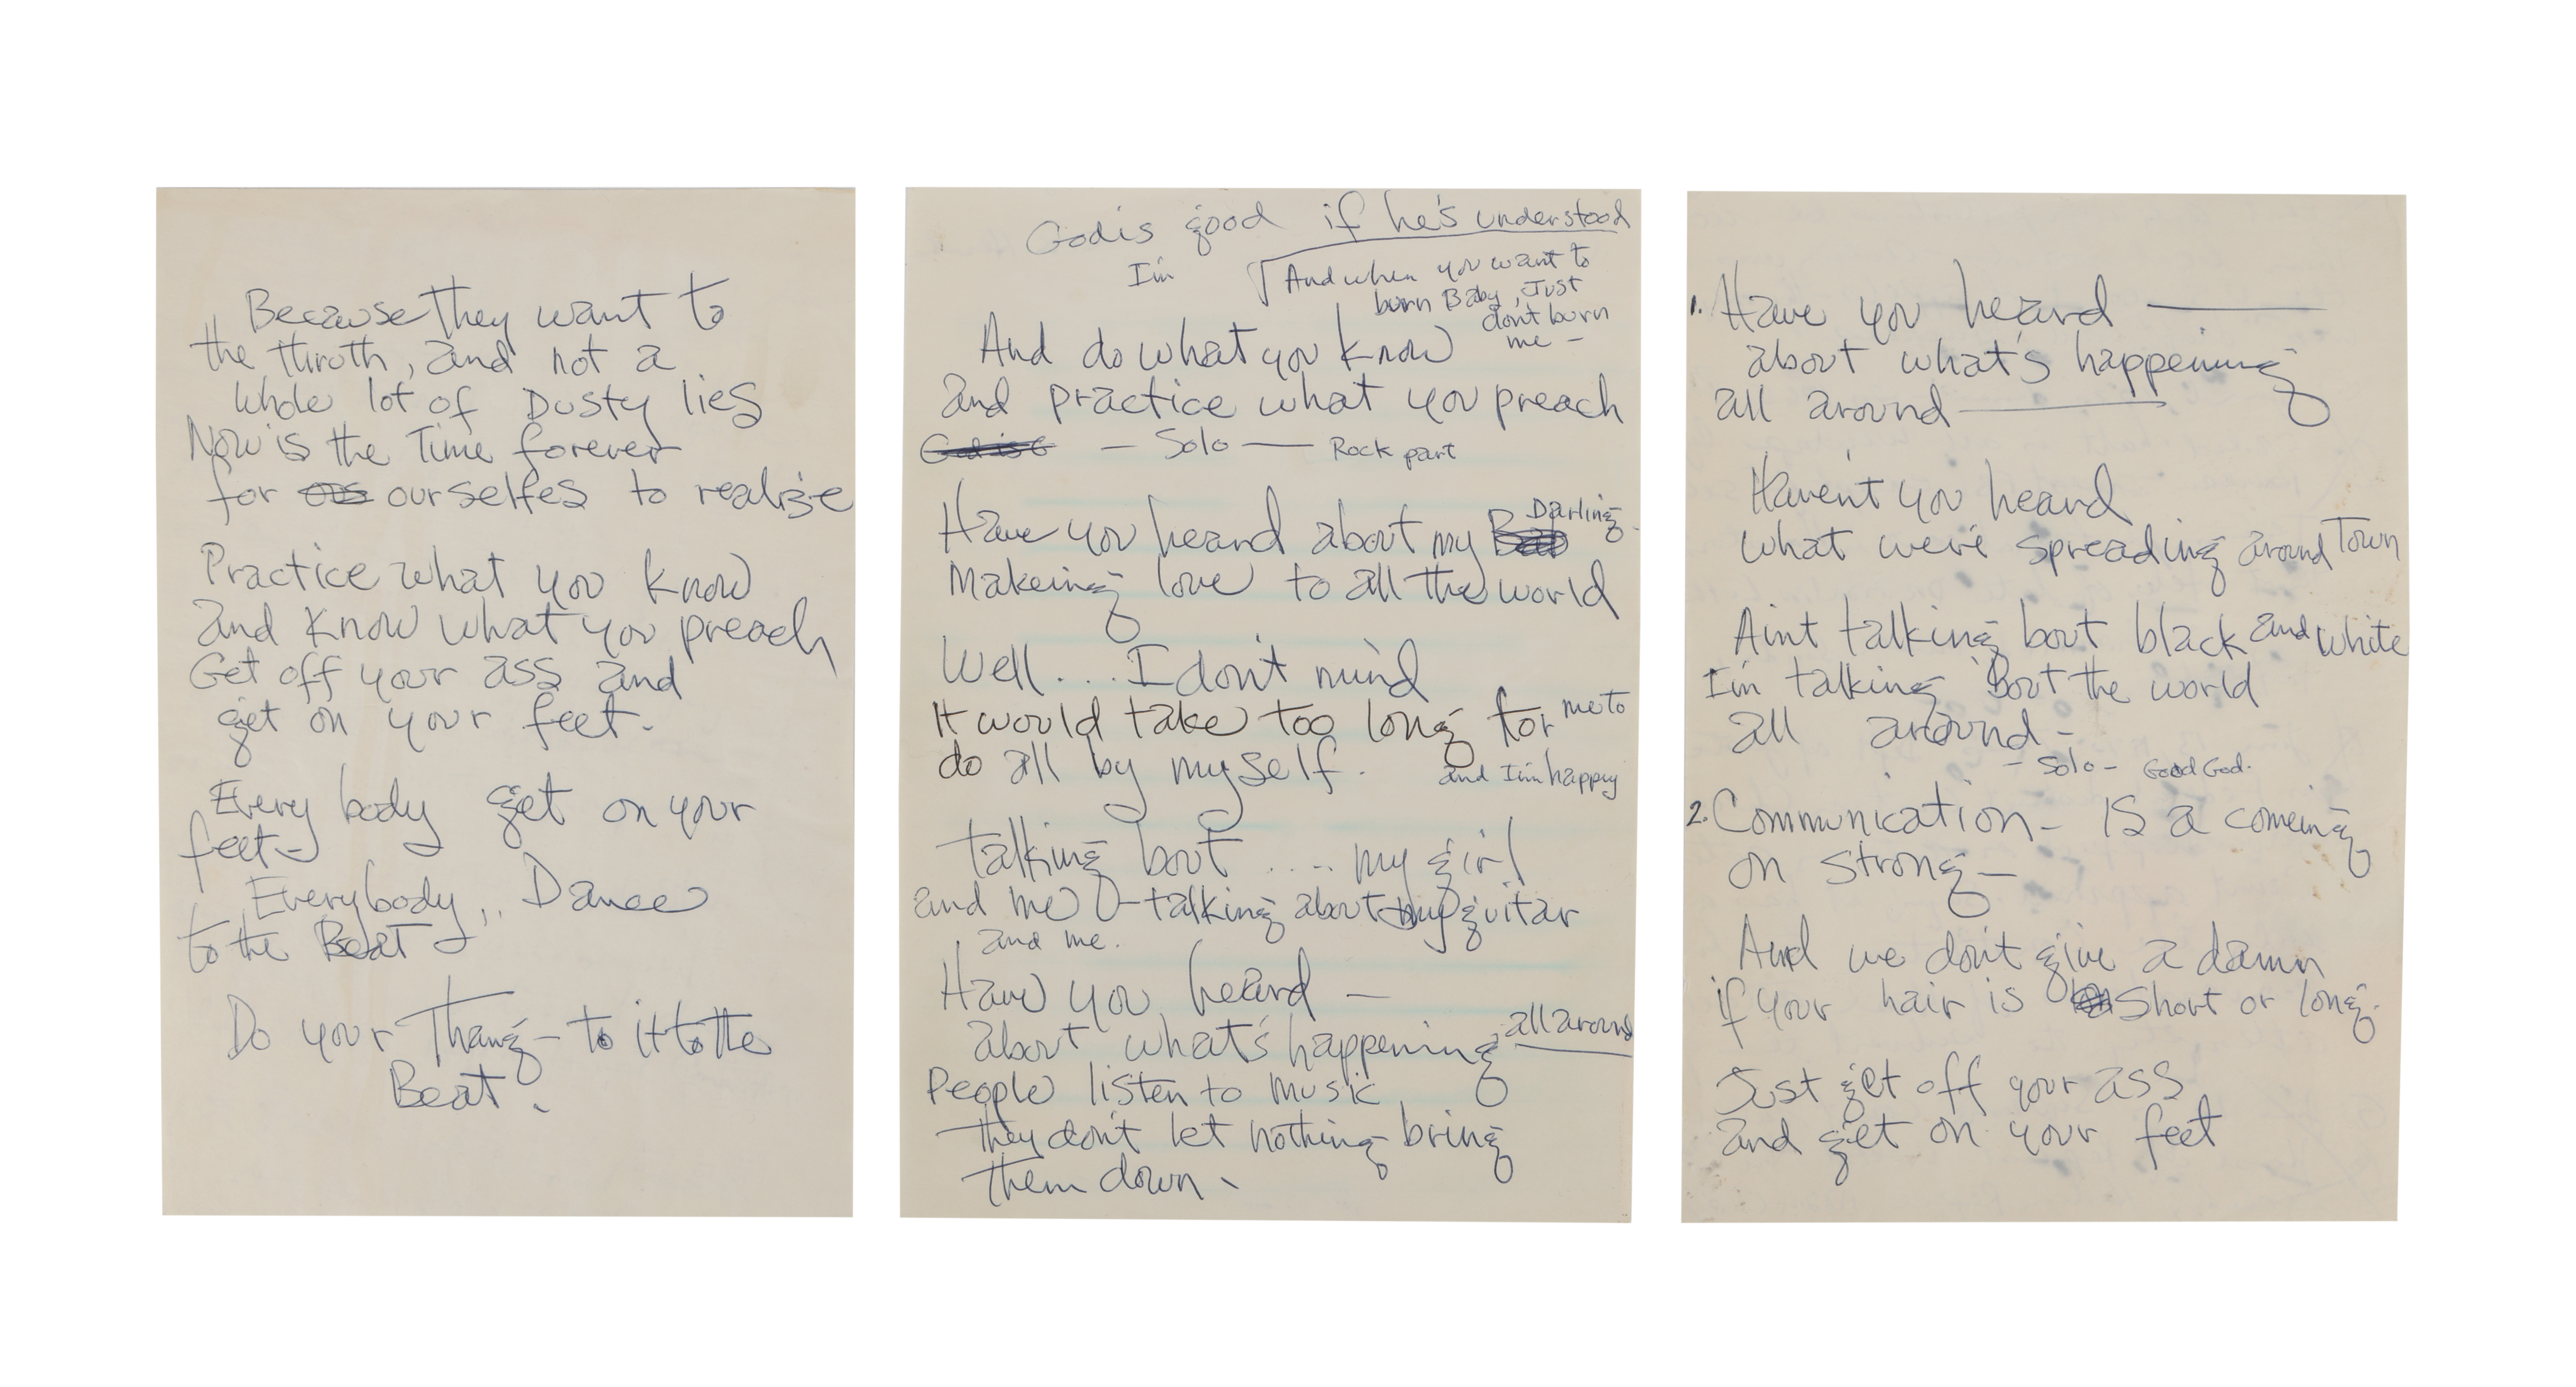 Because they want to
the thruth, and not a
whole lot of Dusty lies
Now is the Time forever
for ourselfes to realize
Practice what you know
and know what you preach
Get off your ass and
get on your feet.
Every body get on your
feet -
Everybody, . Dance
to the Beat
Do your Thang - to it to the
Beat .
God is good if he's understood
I'm
And when you want to
burn Baby, Just
don't burn
me -
And do what you know
and practice what you preach
God is G — Solo — Rock part
Have you heard about my Darling
Makeing love to all the world
Well . . . I don't mind
It would take too long for me to
do all by myself. and I'm happy
talking bout . . . . my girl
and me - talking about my guitar
and me.
Have you heard —
about what's happening all around
People listen to music
they don't let nothing bring
them down.
1. Have you heard ———
about what's happening
all around ———
Haven't you heard
what we're spreading around Town
Ain't talking bout black and white
I'm talking 'Bout the world
all around -
- Solo - Good God.
2. Communication - Is a comeing
on strong —
And we don't give a damn
if your hair is short or long.
Just get off your ass
and get on your feet